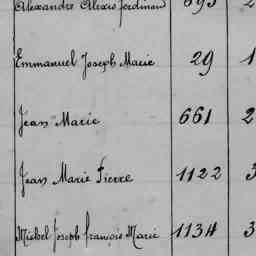 Alexandre Alexis Ferdinand 693 2
Emmanuel Joseph Marie 29 1
Jean Marie 661 2
Jean Marie Pierre 1122 3
Michel Joseph François Marie 1134 3